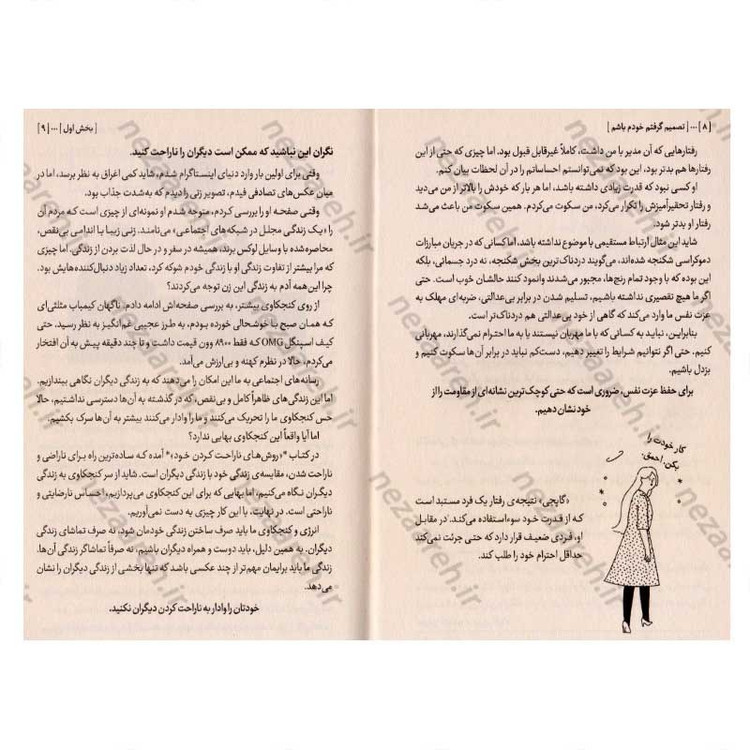 | ۸ | ... | تصمیم گرفتم خودم باشم |
رفتارهایی که آن مدیر با من داشت، کاملاً غیرقابل قبول بود. اما چیزی که حتی از این
رفتارها هم بدتر بود، این بود که نمی‌توانستم احساساتم را در آن لحظات بیان کنم.
او کسی نبود که قدرت زیادی داشته باشد، اما هر بار که خودش را بالاتر از من می‌دید
و رفتار تحقیرآمیزش را تکرار می‌کرد، من سکوت می‌کردم. همین سکوت من باعث می‌شد
رفتار او بدتر شود.
شاید این مثال ارتباط مستقیمی با موضوع نداشته باشد، اما کسانی که در جریان مبارزات
دموکراسی شکنجه شده‌اند، می‌گویند دردناک‌ترین بخش شکنجه، نه درد جسمانی، بلکه
این بوده که با وجود تمام رنج‌ها، مجبور می‌شدند وانمود کنند حالشان خوب است.
اگر ما هیچ تقصیری نداشته باشیم، تسلیم شدن در برابر بی‌عدالتی، ضربه‌ای مهلک به
عزت نفس ما وارد می‌کند که گاهی از خود بی‌عدالتی هم دردناک‌تر است.
بنابراین، نباید به کسانی که با ما مهربان نیستند یا به ما احترام نمی‌گذارند، مهربانی
کنیم. حتی اگر نتوانیم شرایط را تغییر دهیم، دست‌کم نباید در برابر آن‌ها سکوت کنیم و
بزدل باشیم.
برای حفظ عزت نفس، ضروری است که حتی کوچک‌ترین نشانه‌ای از مقاومت را از
خود نشان دهیم.
کار خودت را
بکن، احمق.
«گاپجی» نتیجه‌ی رفتار یک فرد مستبد است
که از قدرت خود سوءاستفاده می‌کند. در مقابل
او، فردی ضعیف قرار دارد که حتی جرئت نمی‌کند
حداقل احترام خود را طلب کند.
| بخش اول | ... | ۹ |
نگران این نباشید که ممکن است دیگران را ناراحت کنید.
وقتی برای اولین بار وارد دنیای اینستاگرام شدم، شاید کمی اغراق به نظر برسد، اما در
میان عکس‌های تصادفی فیدم، تصویر زنی را دیدم که به‌شدت جذاب بود.
وقتی صفحه او را بررسی کردم، متوجه شدم او نمونه‌ای از چیزی است که مردم آن
را «یک زندگی مجلل در شبکه‌های اجتماعی» می‌نامند. زنی زیبا با اندامی بی‌نقص،
محاصره‌شده با وسایل لوکس برند، همیشه در سفر و در حال لذت بردن از زندگی. اما چیزی
که مرا بیشتر از تفاوت زندگی او با زندگی خودم شوکه کرد، تعداد زیاد دنبال‌کننده‌هایش بود.
چرا این‌همه آدم به زندگی این زن توجه می‌کردند؟
از روی کنجکاوی بیشتر، به بررسی صفحه‌اش ادامه دادم. ناگهان کیمباپ مثلثی‌ای
که همان صبح با خوشحالی خورده بودم، به طرز عجیبی غم‌انگیز به نظر رسید. حتی
کیف اسپنگل OMG که فقط ۸۹۰۰ وون قیمت داشت و تا چند دقیقه پیش به آن افتخار
می‌کردم، حالا در نظرم کهنه و بی‌ارزش می‌آمد.
رسانه‌های اجتماعی به ما این امکان را می‌دهند که به زندگی دیگران نگاهی بیندازیم.
اما این زندگی‌های ظاهراً کامل و بی‌نقص، که در گذشته به آن‌ها دسترسی نداشتیم، حالا
حس کنجکاوی ما را تحریک می‌کنند و ما را وادار می‌کنند بیشتر به آن‌ها سرک بکشیم.
اما آیا واقعاً این کنجکاوی بهایی ندارد؟
در کتاب *«روش‌های ناراحت کردن خود»* آمده که ساده‌ترین راه برای ناراضی و
ناراحت شدن، مقایسه‌ی زندگی خود با زندگی دیگران است. شاید از سر کنجکاوی به زندگی
دیگران نگاه می‌کنیم، اما بهایی که برای این کنجکاوی می‌پردازیم، احساس نارضایتی و
ناراحتی است. در نهایت، با این کار چیزی به دست نمی‌آوریم.
انرژی و کنجکاوی ما باید صرف ساختن زندگی خودمان شود، نه صرف تماشای زندگی
دیگران. به همین دلیل، باید دوست و همراه دیگران باشیم، نه صرفاً تماشاگر زندگی آن‌ها.
زندگی ما باید برایمان مهم‌تر از چند عکسی باشد که تنها بخشی از زندگی دیگران را نشان
می‌دهد.
خودتان را وادار به ناراحت کردن دیگران نکنید.
nezaareh.ir